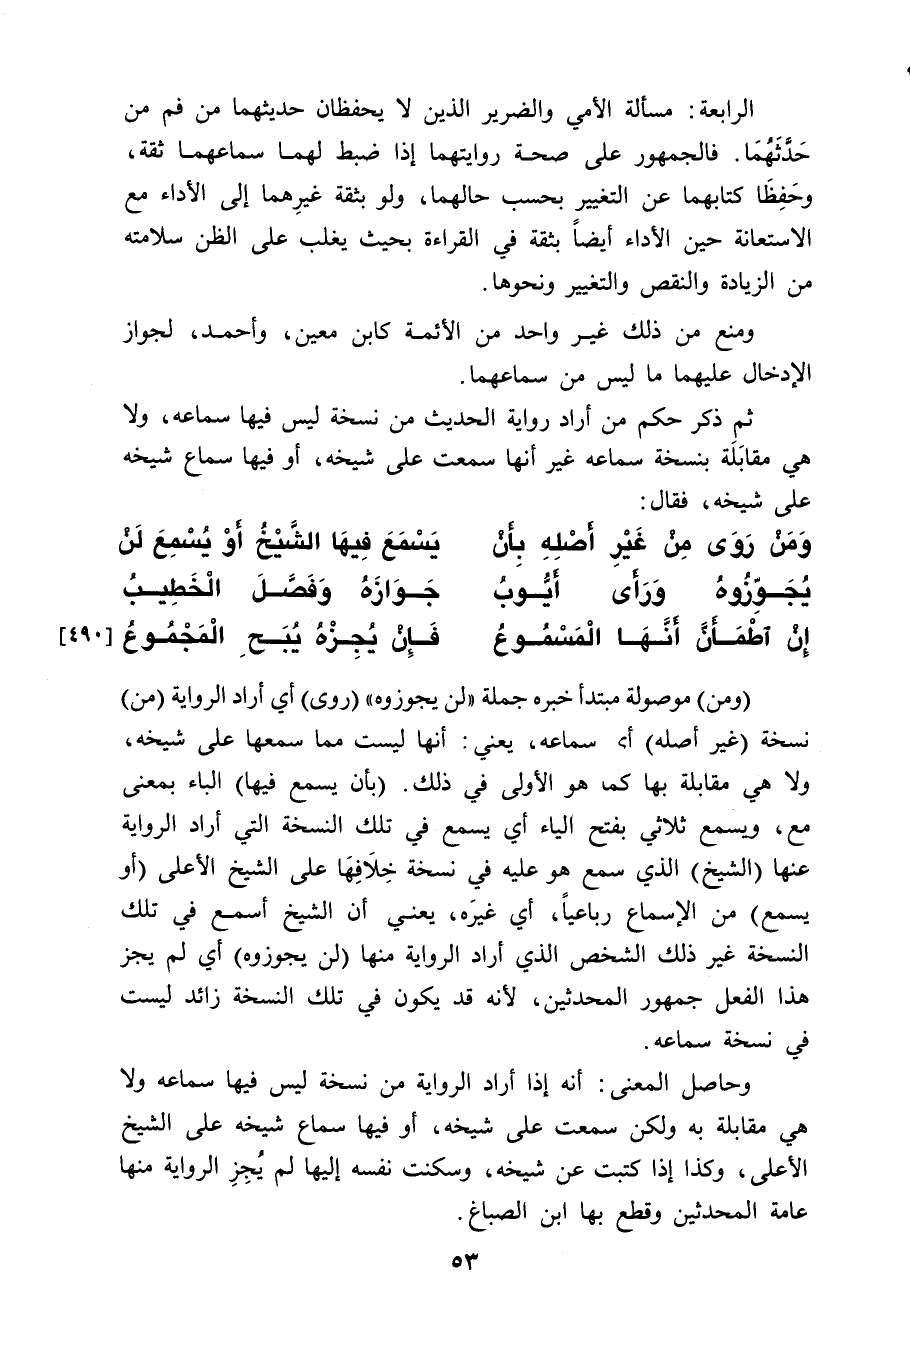 الرابعة: مسألة الأمي والضرير الذين لا يحفظان حديثهما من فم من
حَدَّثَهُمَا. فالجمهور على صحة روايتهما إذا ضبط لهما سماعهما ثقة،
وحَفِظَا كتابهما عن التغيير بحسب حالهما، ولو بثقة غيرِهما إلى الأداء مع
الاستعانة حين الأداء أيضاً بثقة في القراءة بحيث يغلب على الظن سلامته
من الزيادة والنقص والتغيير ونحوها.
ومنع من ذلك غير واحد من الأئمة كابن معين، وأحمد، لجواز
الإدخال عليهما ما ليس من سماعهما.
ثم ذكر حكم من أراد رواية الحديث من نسخة ليس فيها سماعه، ولا
هي مقابَلَة بنسخة سماعه غير أنها سمعت على شيخه، أو فيها سماع شيخه
على شيخه، فقال:
وَمَنْ رَوَى مِنْ غَيْرِ أَصْلِهِ بِأَنْ يَسْمَعَ فِيهَا الشَّيْخُ أَوْ يُسْمِعَ لَنْ
يُجَوِّزُوهُ وَرَأَى أَيُّوبُ جَوَازَهُ وَفَصَّلَ الْخَطِيبُ
إِنْ ٱطْمَأَنَّ أَنَّهَا الْمَسْمُوعُ فَإِنْ يُجِزْهُ يُبَحِ الْمَجْمُوعُ [٤٩٠]
(ومن) موصولة مبتدأ خبره جملة «لن يجوزوه» (روى) أي أراد الرواية (من)
نسخة (غير أصله) أي سماعه، يعني: أنها ليست مما سمعها على شيخه،
ولا هي مقابلة بها كما هو الأولى في ذلك. (بأن يسمع فيها) الباء بمعنى
مع، ويسمع ثلاثي بفتح الياء أي يسمع في تلك النسخة التي أراد الرواية
عنها (الشيخ) الذي سمع هو عليه في نسخة خِلَافِهَا على الشيخ الأعلى (أو
يسمع) من الإسماع رباعياً، أي غيرَه، يعني أن الشيخ أسمع في تلك
النسخة غير ذلك الشخص الذي أراد الرواية منها (لن يجوزوه) أي لم يجز
هذا الفعل جمهور المحدثين، لأنه قد يكون في تلك النسخة زائد ليست
في نسخة سماعه.
وحاصل المعنى: أنه إذا أراد الرواية من نسخة ليس فيها سماعه ولا
هي مقابلة به ولكن سمعت على شيخه، أو فيها سماع شيخه على الشيخ
الأعلى، وكذا إذا كتبت عن شيخه، وسكنت نفسه إليها لم يُجِزِ الرواية منها
عامة المحدثين وقطع بها ابن الصباغ.
٥٣